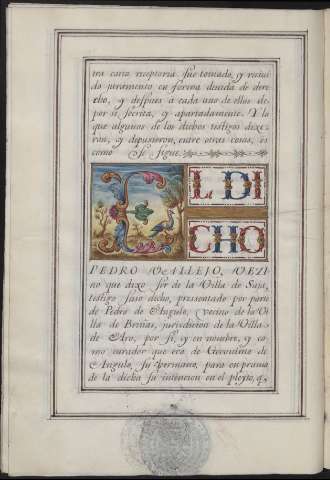 tra carta receptoria fue tomado, y reciui
do juramento en forma deuida de dere
cho, y despues a cada uno de ellos de
por si, secreta, y apartadamente. Y lo
que algunos de los dichos testigos dixe
ron, y depusieron, entre otras cosas, es
como se sigue.
E L DI
CHO
PEDRO VALLEJO, VEZI
no que dixo ser de la Villa de
testigo suso decho, pressentado por parte
de Pedro de Angulo, vecino de la Vi
lla de Briñas, jurisdicion de la Villa
de Aro, por si, y en nombre, y co
mo curador que era de Geronimo de
Angulo, su hermano, para en prueua
de la dicha su intencion en el pleyto, q,